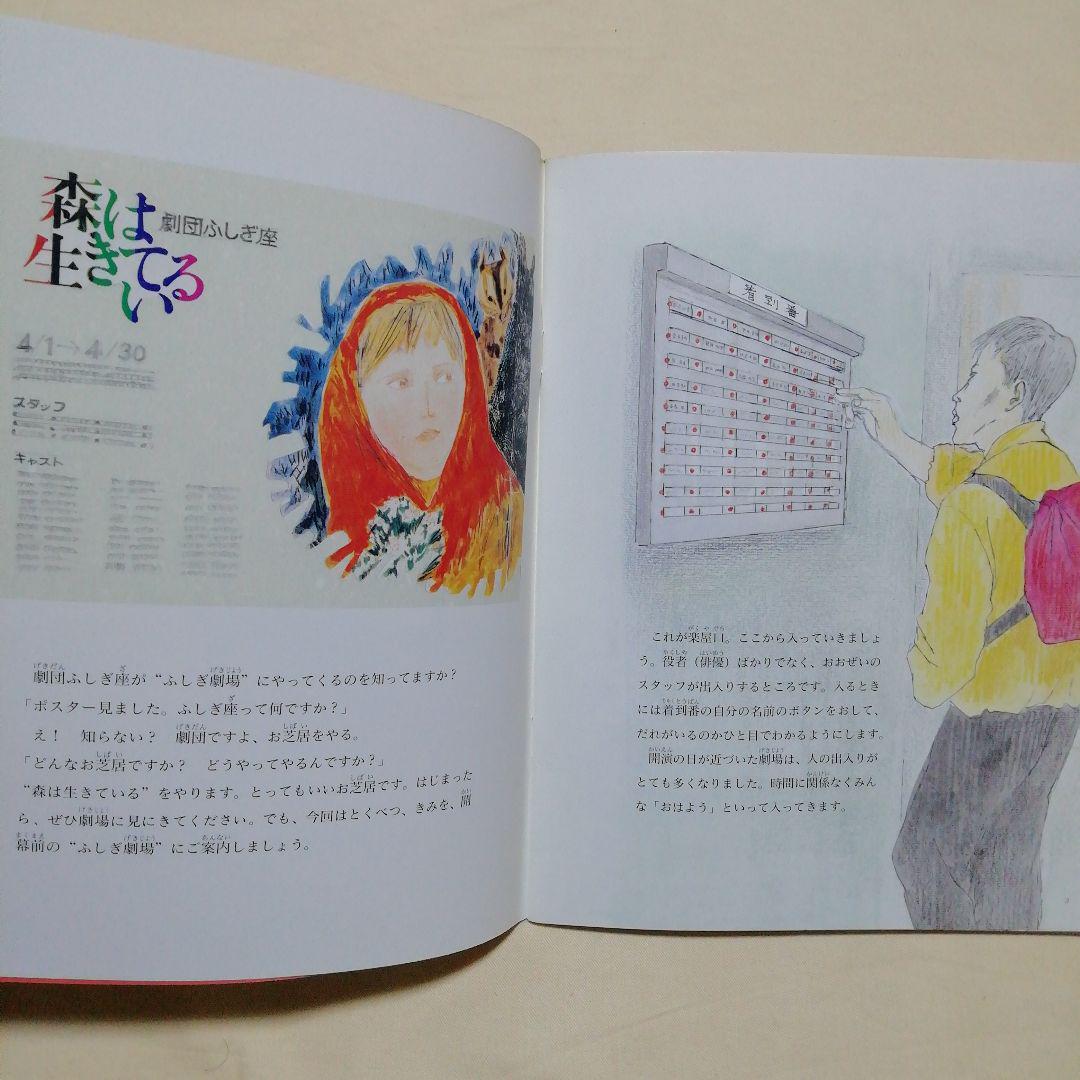 森は
生きている
劇団ふしぎ座
4/1→4/30
スタッフ
キャスト
劇団ふしぎ座が“ふしぎ劇場”にやってくるのを知ってますか？
「ポスター見ました。ふしぎ座って何ですか？」
え！　知らない？　劇団ですよ、お芝居をやる。
「どんなお芝居ですか？　どうやってやるんですか？」
“森は生きている”をやります。とってもいいお芝居です。はじまった
ら、ぜひ劇場に見にきてください。でも、今回はとくべつ、きみを、開
幕前の“ふしぎ劇場”にご案内しましょう。
着到番
これが楽屋口。ここから入っていきましょ
う。役者（俳優）ばかりでなく、おおぜいの
スタッフが出入りするところです。入るとき
には着到番の自分の名前のボタンをおして、
だれがいるのかひと目でわかるようにします。
開演の日が近づいた劇場は、人の出入りが
とても多くなりました。時間に関係なくみん
な「おはよう」といって入ってきます。
3